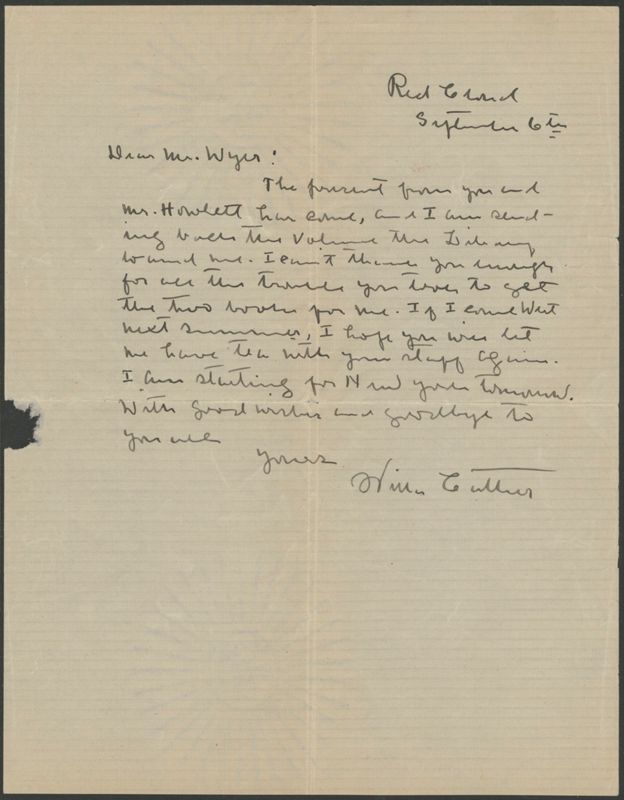 Red Cloud
September 6th
Dear Mr. Wyer:
The present from you and
Mr. Howlett has come, and I am send-
ing back the volume the Library
loaned me. I can't thank you enough
for all the trouble you took to get
the two books for me. If I come West
next summer, I hope you will let
me have tea with your staff again.
I am starting for New York tomorrow.
With good wishes and goodbye to
you all
Yours
Willa Cather